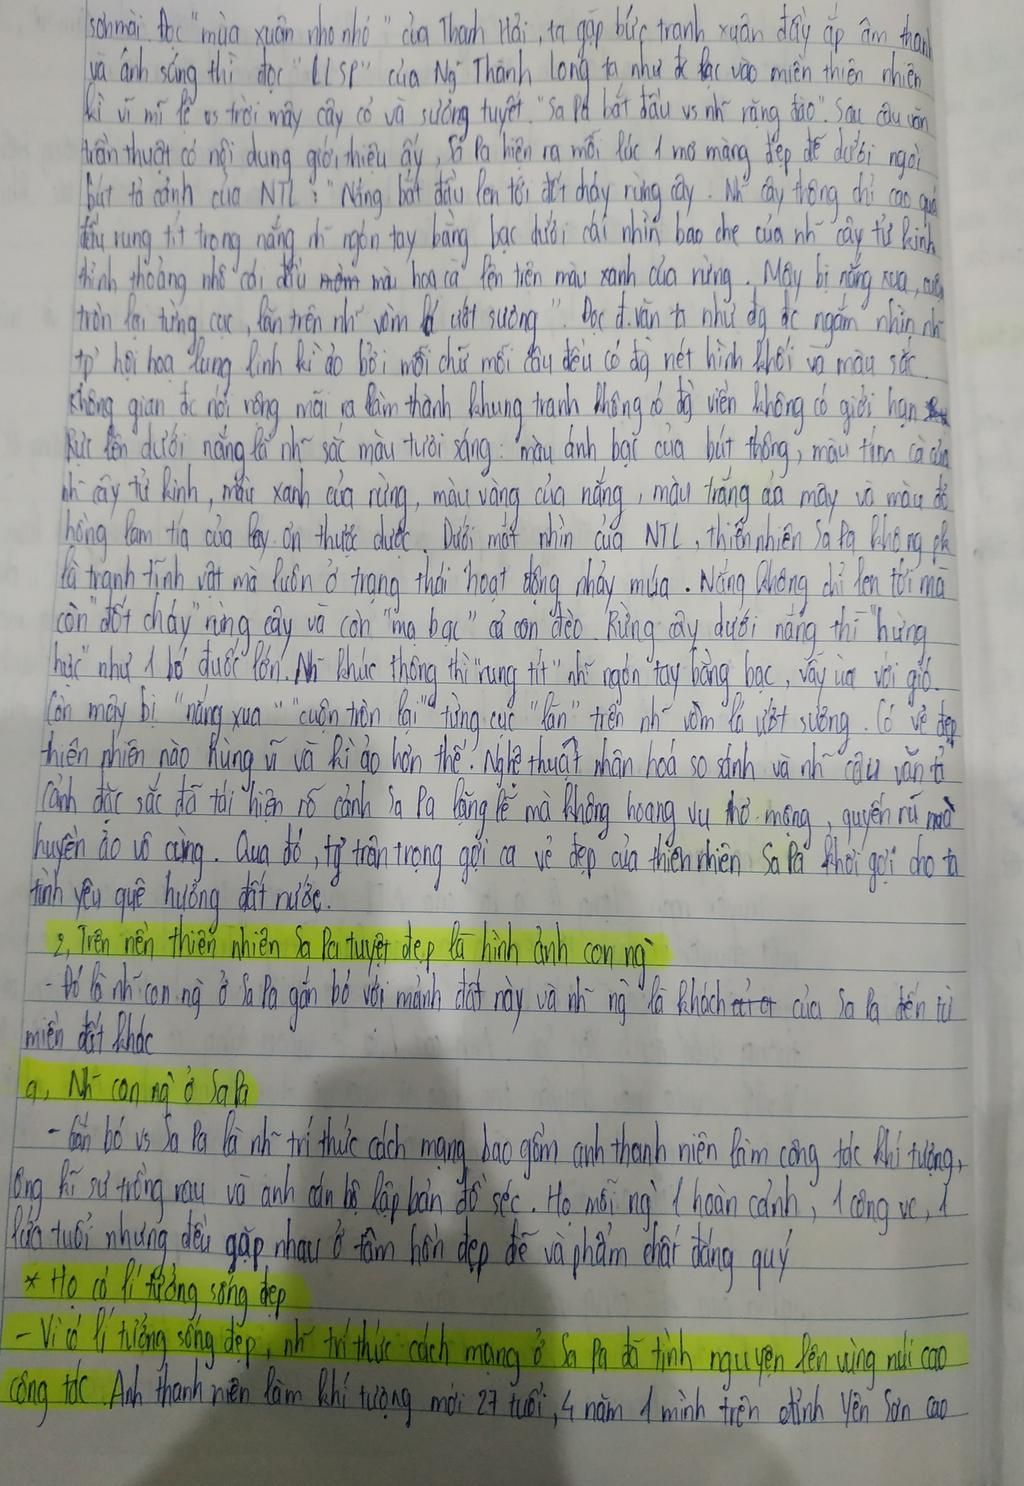 sơn mài. Đọc "mùa xuân nho nhỏ" của Thanh Hải, ta gặp bức tranh xuân đầy ắp âm thanh
và ánh sáng thì đọc "LLSP" của Ng~ Thành Long ta như đc lạc vào miền thiên nhiên
kì vĩ mĩ lệ vs trời mây cây cỏ và sương tuyết. "Sa Pa bắt đầu vs nh~ rặng đào". Sau câu văn
trần thuật có nội dung giới thiệu ấy, Sa Pa hiện ra mỗi lúc 1 mơ màng đẹp đẽ dưới ngòi
bút tả cảnh của NTL: "Nắng bắt đầu len tới đốt cháy rừng cây. Nh~ cây thông chỉ cao quá
đầu rung tít trong nắng nh~ ngón tay bằng bạc dưới cái nhìn bao che của nh~ cây tử kinh
thỉnh thoảng nhô cái đầu màu hoa cà lên trên màu xanh của rừng. Mây bị nắng xua, cuộn
tròn lại từng cục, lăn trên nh~ vòm lá ướt sương". Đọc đ.văn ta như đg đc ngắm nhìn nh~
tp' hội hoạ lung linh kì ảo bởi mỗi chữ mỗi câu đều có đg nét hình khối và màu sắc.
Không gian đc nới rộng mãi ra làm thành khung tranh không có đg viền không có giới hạn
Rực lên dưới nắng là nh~ sắc màu tươi sáng: màu ánh bạc của bút thông, màu tím cà của
nh~ cây tử kinh, màu xanh của rừng, màu vàng của nắng, màu trắng của mây và màu đỏ
hồng lam tía của lay ơn thược dược. Dưới mắt nhìn của NTL, thiên nhiên Sa Pa không ph
là tranh tĩnh vật mà luôn ở trạng thái hoạt động nhảy múa. Nắng không chỉ len tới mà
còn "đốt cháy" rừng cây và còn "mạ bạc" cả con đèo. Rừng cây dưới nắng thì "hừng
hực" như 1 bó đuốc lớn. Nh~ khúc thông thì "rung tít" nh~ ngón tay bằng bạc, vẫy ùa với gió.
Còn mây bị "nắng xua" "cuộn tròn lại" từng cục "lăn" trên nh~ vòm lá ướt sương. Có vẻ đẹp
thiên nhiên nào hùng vĩ và kì ảo hơn thế. Nghệ thuật nhân hoá so sánh và nh~ câu văn tả
cảnh đặc sắc đã tái hiện rõ cảnh Sa Pa lặng lẽ mà không hoang vu thơ mộng, quyến rũ mà
huyền ảo vô cùng. Qua đó, tg trân trọng gợi ca vẻ đẹp của thiên nhiên Sa Pa khơi gợi cho ta
tình yêu quê hương đất nước.
2, Trên nền thiên nhiên Sa Pa tuyệt đẹp là hình ảnh con ng`
- Đó là nh~ con ng` ở Sa Pa gắn bó với mảnh đất này và nh~ ng` là khách của Sa Pa đến từ
miền đất khác
a, Nh~ con ng` ở Sa Pa
- Gắn bó vs Sa Pa là nh~ trí thức cách mạng bao gồm anh thanh niên làm công tác khí tượng,
ông kĩ sư trồng rau và anh cán bộ lập bản đồ sét. Họ mỗi ng` 1 hoàn cảnh, 1 công vc, 1
lứa tuổi nhưng đều gặp nhau ở tâm hồn đẹp đẽ và phẩm chất đáng quý
* Họ có lí tưởng sống đẹp
- Vì có lí tưởng sống đẹp, nh~ trí thức cách mạng ở Sa Pa đã tình nguyện lên vùng núi cao
công tác. Anh thanh niên làm khí tượng mới 27 tuổi, 4 năm 1 mình trên đỉnh Yên Sơn cao